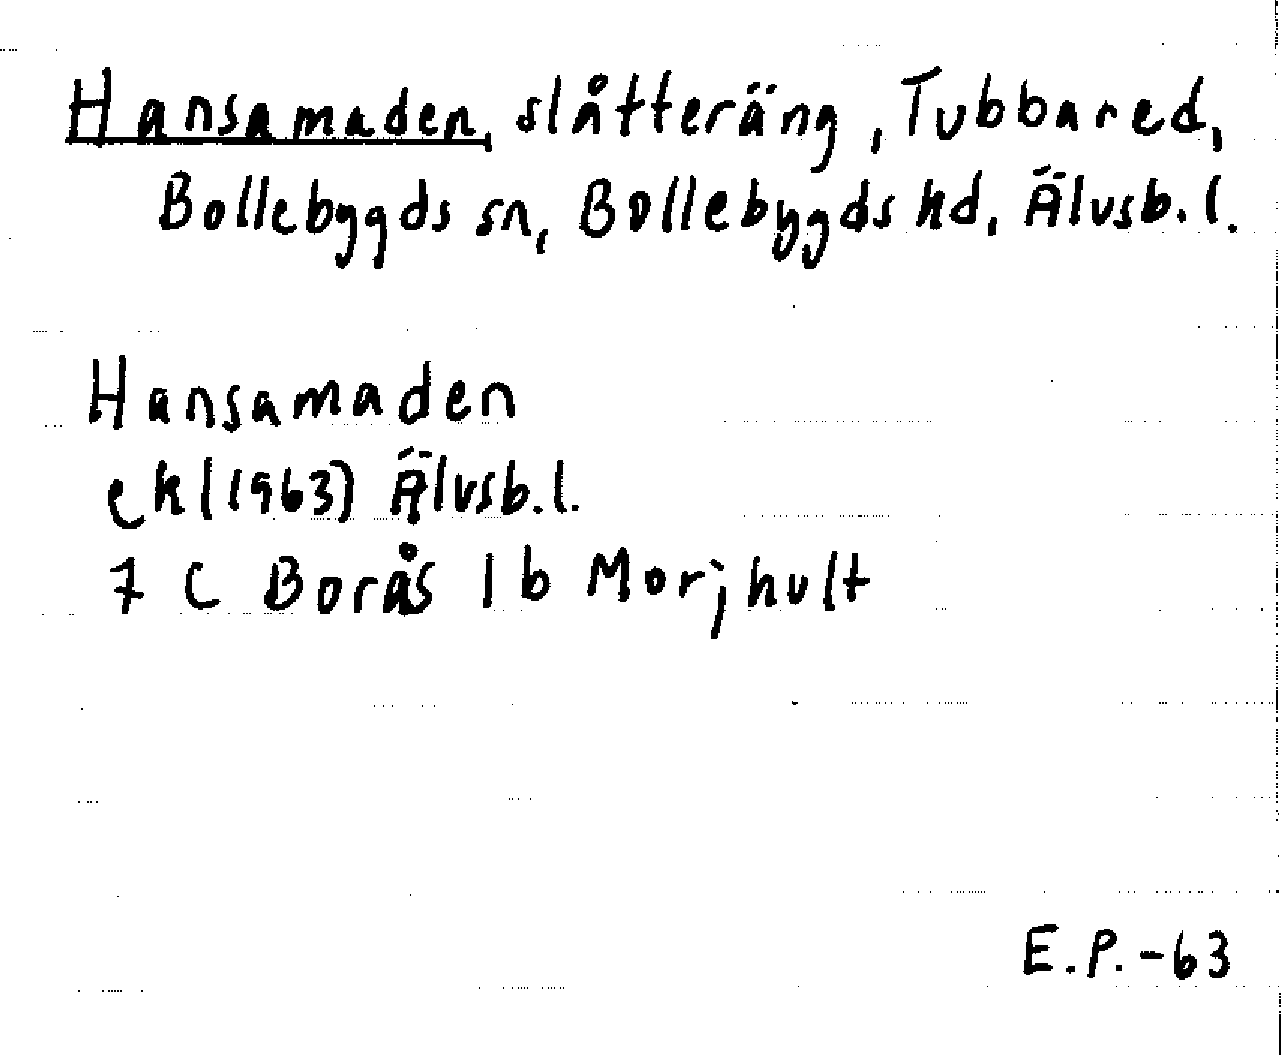 Hansamaden, slåtteräng, Tubbared,
Bollebygds sn, Bollebygds hd, Älvsb. l.
Hansamaden
ek (1963) Älvsb. l.
7 C Borås 1 b Morjhult
E.P.-63